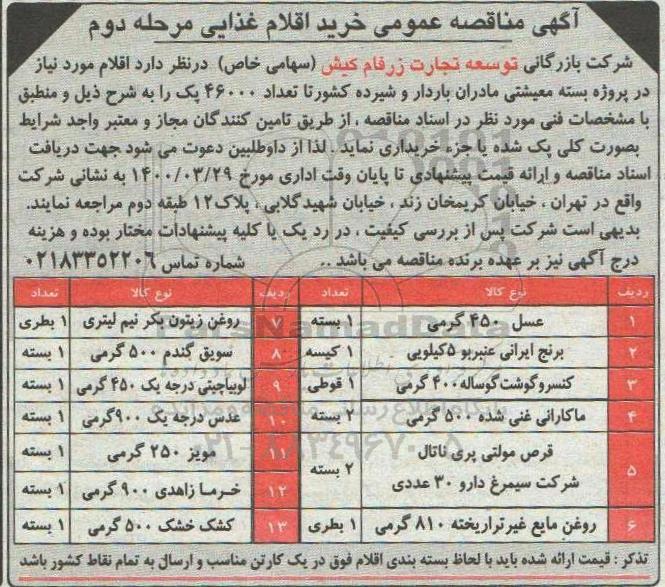 آگهی مناقصه عمومی خرید اقلام غذایی مرحله دوم
شرکت بازرگانی توسعه تجارت زرفام کیش (سهامی خاص) درنظر دارد اقلام مورد نیاز
در پروژه بسته معیشتی مادران باردار و شیرده کشورتا تعداد ۴۶۰۰۰ پک را به شرح ذیل و منطبق
با مشخصات فنی مورد نظر در اسناد مناقصه ، از طریق تامین کنندگان مجاز و معتبر واجد شرایط
بصورت کلی پک شده یا جزء خریداری نماید . لذا از داوطلبین دعوت می شود جهت دریافت
اسناد مناقصه و ارائه قیمت پیشنهادی تا پایان وقت اداری مورخ ۱۴۰۰/۰۳/۲۹ به نشانی شرکت
واقع در تهران ، خیابان کریمخان زند ، خیابان شهیدگلابی ، پلاک۱۲ طبقه دوم مراجعه نمایند.
بدیهی است شرکت پس از بررسی کیفیت ، در رد یک یا کلیه پیشنهادات مختار بوده و هزینه
درج آگهی نیز بر عهده برنده مناقصه می باشد .. شماره تماس ۰۲۱۸۳۳۵۲۲۰۶
ردیف نوع کالا تعداد ردیف نوع کالا تعداد
۱ عسل ۴۵۰ گرمی ۱ بسته ۷ روغن زیتون بکر نیم لیتری ۱ بطری
۲ برنج ایرانی عنبربو ۵کیلویی ۱ کیسه ۸ سویق گندم ۵۰۰ گرمی ۱ بسته
۳ کنسروگوشت‌گوساله۴۰۰ گرمی ۱ قوطی ۹ لوبیاچیتی درجه یک ۴۵۰ گرمی ۱ بسته
۴ ماکارانی غنی شده ۵۰۰ گرمی ۲ بسته ۱۰ عدس درجه یک ۹۰۰گرمی ۱ بسته
۵ قرص مولتی پری ناتال شرکت سیمرغ دارو ۳۰ عددی ۲ بسته ۱۱ مویز ۲۵۰ گرمی ۱ بسته
۱۲ خرما زاهدی ۹۰۰ گرمی ۱ بسته
۶ روغن مایع غیرتراریخته ۸۱۰ گرمی ۱ بطری ۱۳ کشک خشک ۵۰۰ گرمی ۱ بسته
تذکر : قیمت ارائه شده باید با لحاظ بسته بندی اقلام فوق در یک کارتن مناسب و ارسال به تمام نقاط کشور باشد